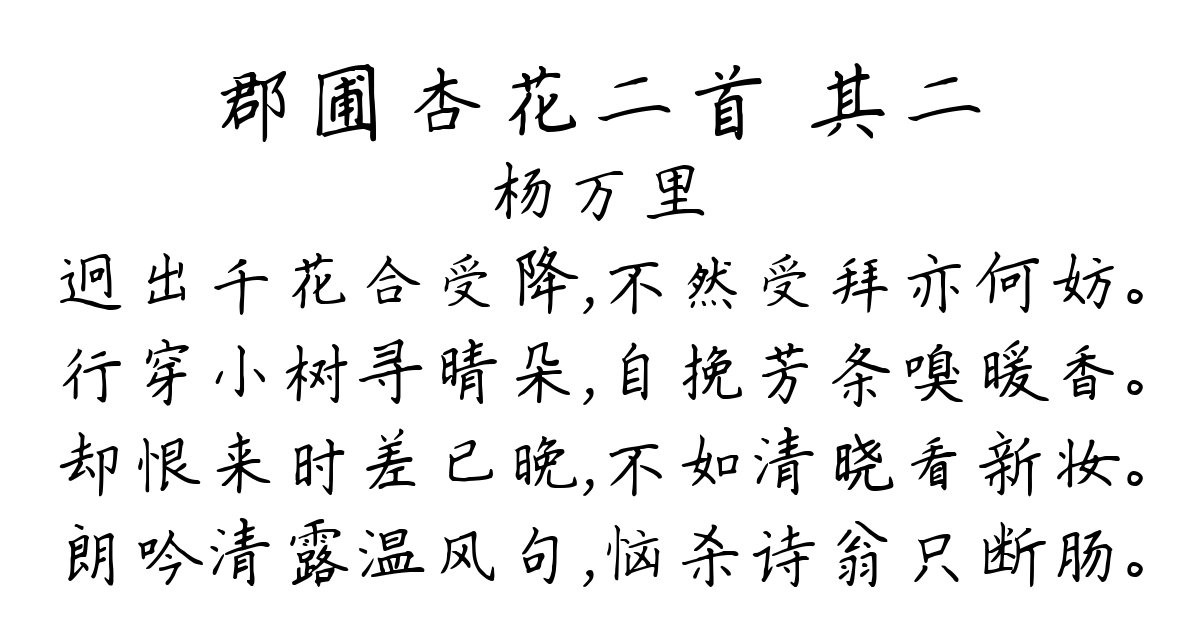 郡圃杏花二首 其二
杨万里
迥出千花合受降,不然受拜亦何妨。
行穿小树寻晴朵,自挽芳条嗅暖香。
却恨来时差已晚,不如清晓看新妆。
朗吟清露温风句,恼杀诗翁只断肠。